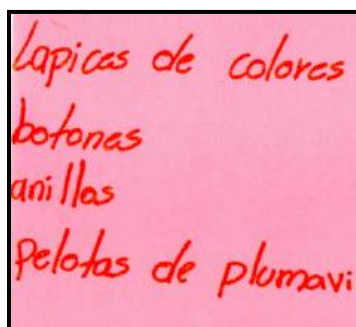 Lapices de colores
botones
anillos
pelotas de plumavi